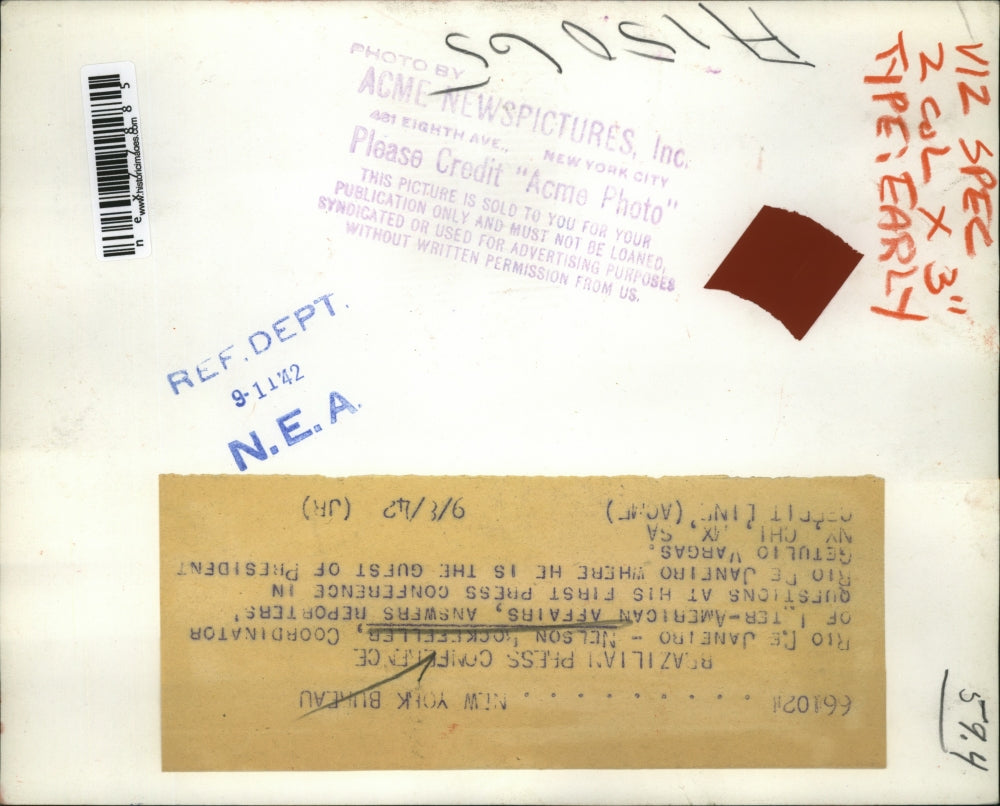 A15065
PHOTO BY
ACME NEWSPICTURES, Inc.
461 EIGHTH AVE., NEW YORK CITY
Please Credit "Acme Photo"
THIS PICTURE IS SOLD TO YOU FOR YOUR
PUBLICATION ONLY AND MUST NOT BE LOANED,
SYNDICATED OR USED FOR ADVERTISING PURPOSES
WITHOUT WRITTEN PERMISSION FROM US.
VIZ SPEC
2 COL X 3"
TYPE: EARLY
www.historicimages.com
REF. DEPT.
9-11'42
N.E.A.
NEW YORK BUREAU
BRAZILIAN PRESS CONFERENCE
RIO DE JANEIRO - NELSON ROCKEFELLER, COORDINATOR
OF INTER-AMERICAN AFFAIRS, ANSWERS REPORTERS'
QUESTIONS AT HIS FIRST PRESS CONFERENCE IN
RIO DE JANEIRO WHERE HE IS THE GUEST OF PRESIDENT
GETULIO VARGAS.
NY, CHI, SA
CREDIT LINE (ACME) 9/8/42 (JR)